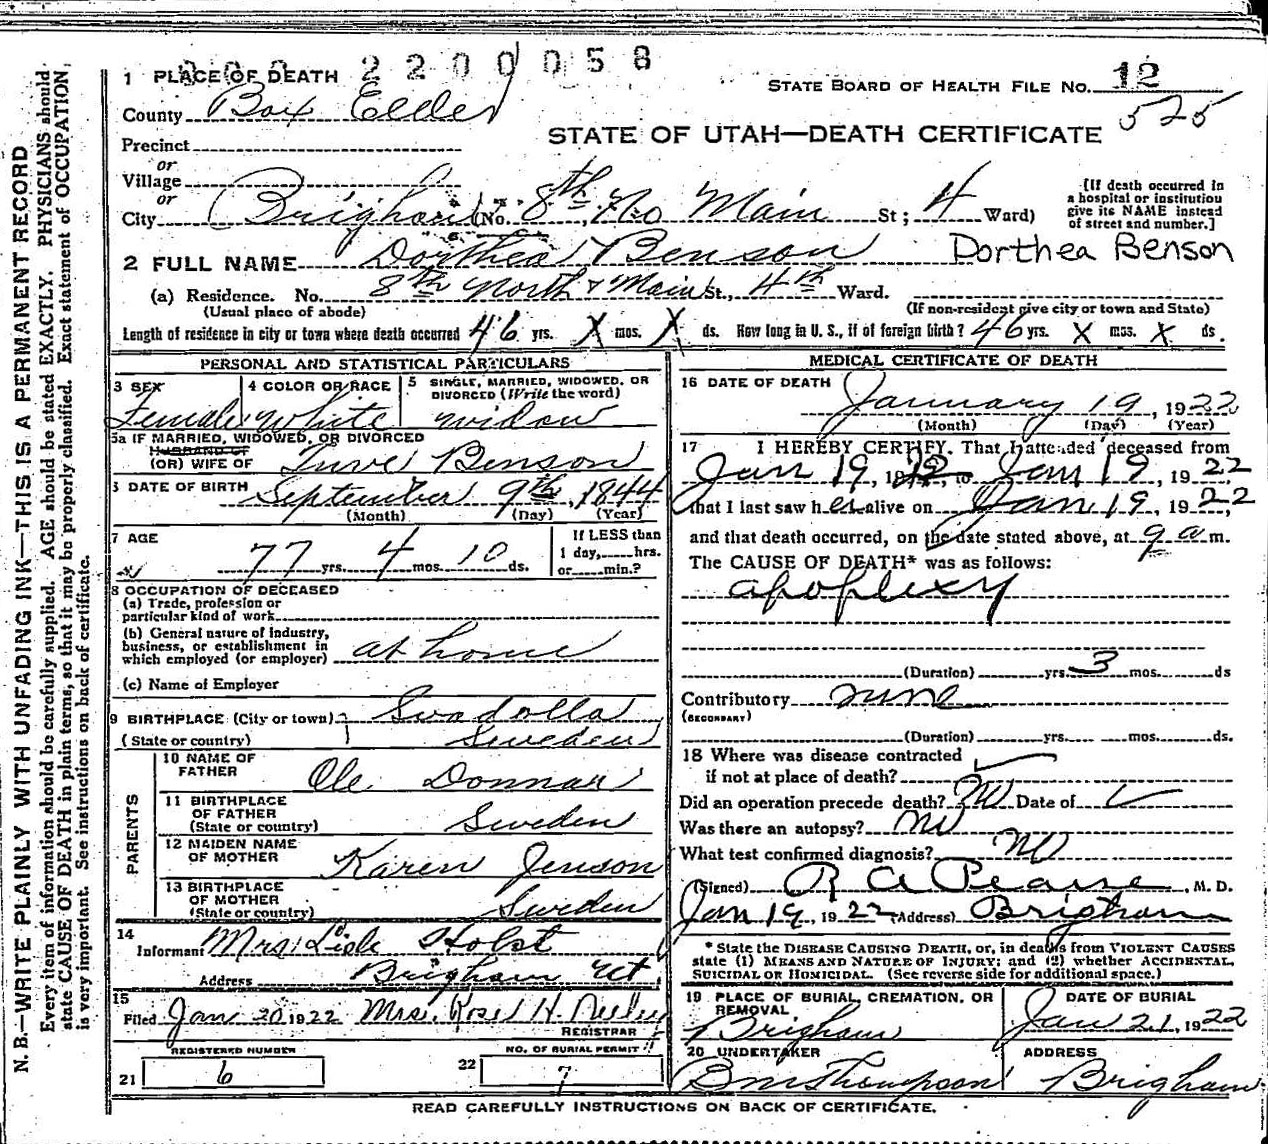 2200058
1 PLACE OF DEATH
STATE BOARD OF HEALTH FILE NO. 12
525
County Box Elder
STATE OF UTAH—DEATH CERTIFICATE
Precinct
or
Village
or
City Brigham (No. 8th No Main St; 4 Ward)
[If death occurred in a hospital or institution give its NAME instead of street and number.]
2 FULL NAME Dorthea Benson Dorthea Benson
(a) Residence. No. 8th North & Main St., 4th Ward.
(Usual place of abode) (If non-resident give city or town and State)
Length of residence in city or town where death occurred 46 yrs. X mos. X ds. How long in U. S., if of foreign birth? 46 yrs. X mos. X ds.
PERSONAL AND STATISTICAL PARTICULARS
3 SEX Female
4 COLOR OR RACE White
5 SINGLE, MARRIED, WIDOWED, OR DIVORCED (Write the word) widow
5a IF MARRIED, WIDOWED, OR DIVORCED
HUSBAND OF
(OR) WIFE OF Ture Benson
6 DATE OF BIRTH September 9th, 1844
(Month) (Day) (Year)
7 AGE 77 yrs. 4 mos. 10 ds.
If LESS than
1 day, hrs.
or min.?
8 OCCUPATION OF DECEASED
(a) Trade, profession or
particular kind of work
(b) General nature of industry,
business, or establishment in
which employed (or employer) at home
(c) Name of Employer
9 BIRTHPLACE (City or town) Swadolla
(State or country) Sweden
PARENTS
10 NAME OF FATHER Ole Donnar
11 BIRTHPLACE OF FATHER (State or country) Sweden
12 MAIDEN NAME OF MOTHER Karen Jenson
13 BIRTHPLACE OF MOTHER (State or country) Sweden
14
Informant Mrs Holst
Address Brigham Ut
15
Filed Jan 20 1922 Mrs. Rose H. Neeley
REGISTRAR
REGISTERED NUMBER
21 6
NO. OF BURIAL PERMIT
22 7
MEDICAL CERTIFICATE OF DEATH
16 DATE OF DEATH January 19, 1922
(Month) (Day) (Year)
17 I HEREBY CERTIFY, That I attended deceased from
Jan 19, 19 22, to Jan 19, 1922
that I last saw her alive on Jan 19, 1922,
and that death occurred, on the date stated above, at 9 a m.
The CAUSE OF DEATH* was as follows:
apoplexy
(Duration) yrs. 3 mos. ds
Contributory none
(SECONDARY)
(Duration) yrs. mos. ds.
18 Where was disease contracted
if not at place of death?
Did an operation precede death? no Date of
Was there an autopsy? no
What test confirmed diagnosis? no
(Signed) R A Pearse, M. D.
Jan 19, 1922 (Address) Brigham
* State the DISEASE CAUSING DEATH, or, in deaths from VIOLENT CAUSES
state (1) MEANS AND NATURE OF INJURY; and (2) whether ACCIDENTAL,
SUICIDAL OR HOMICIDAL. (See reverse side for additional space.)
19 PLACE OF BURIAL, CREMATION, OR REMOVAL Brigham
DATE OF BURIAL Jan 21, 1922
20 UNDERTAKER Thompson
ADDRESS Brigham
READ CAREFULLY INSTRUCTIONS ON BACK OF CERTIFICATE.
N. B.—WRITE PLAINLY WITH UNFADING INK—THIS IS A PERMANENT RECORD
Every item of information should be carefully supplied. AGE should be stated EXACTLY. PHYSICIANS should
state CAUSE OF DEATH in plain terms, so that it may be properly classified. Exact statement of OCCUPATION
is very important. See instructions on back of certificate.